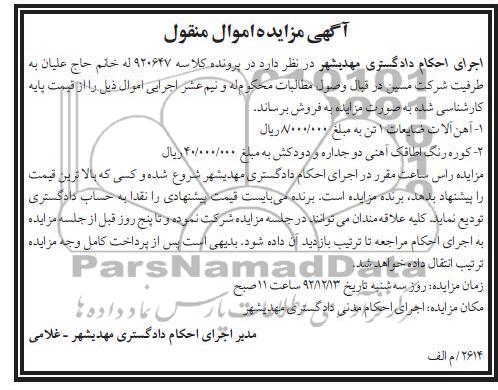 آگهی مزایده اموال منقول
اجرای احکام دادگستری مهدیشهر در نظر دارد در پرونده کلاسه ۹۲۰۶۴۷ له خانم حاج علیان به
طرفیت شرکت مسین در قبال وصول مطالبات محکوم‌له و نیم عشر اجرایی اموال ذیل را از قیمت پایه
کارشناسی شده به صورت مزایده به فروش برساند.
۱- آهن آلات ضایعات ۱ تن به مبلغ ۸/۰۰۰/۰۰۰ ریال
۲- کوره رنگ اطاقک آهنی دو جداره و دودکش به مبلغ ۴۰/۰۰۰/۰۰۰ ریال
مزایده راس ساعت مقرر در اجرای احکام دادگستری مهدیشهر شروع شده و کسی که بالاترین قیمت
را پیشنهاد بدهد، برنده مزایده است. برنده می‌بایست قیمت پیشنهادی را نقدا به حساب دادگستری
تودیع نماید. کلیه علاقه‌مندان می توانند در جلسه مزایده شرکت نموده و تا پنج روز قبل از جلسه مزایده
به اجرای احکام مراجعه تا ترتیب بازدید آن داده شود. بدیهی است پس از پرداخت کامل وجه مزایده
ترتیب انتقال داده خواهد شد.
ParsNamadData
زمان مزایده: روز سه شنبه تاریخ ۹۲/۱۲/۱۳ ساعت ۱۱ صبح
مکان مزایده: اجرای احکام مدنی دادگستری مهدیشهر
مدیر اجرای احکام دادگستری مهدیشهر - غلامی
۲۶۱۴/م الف